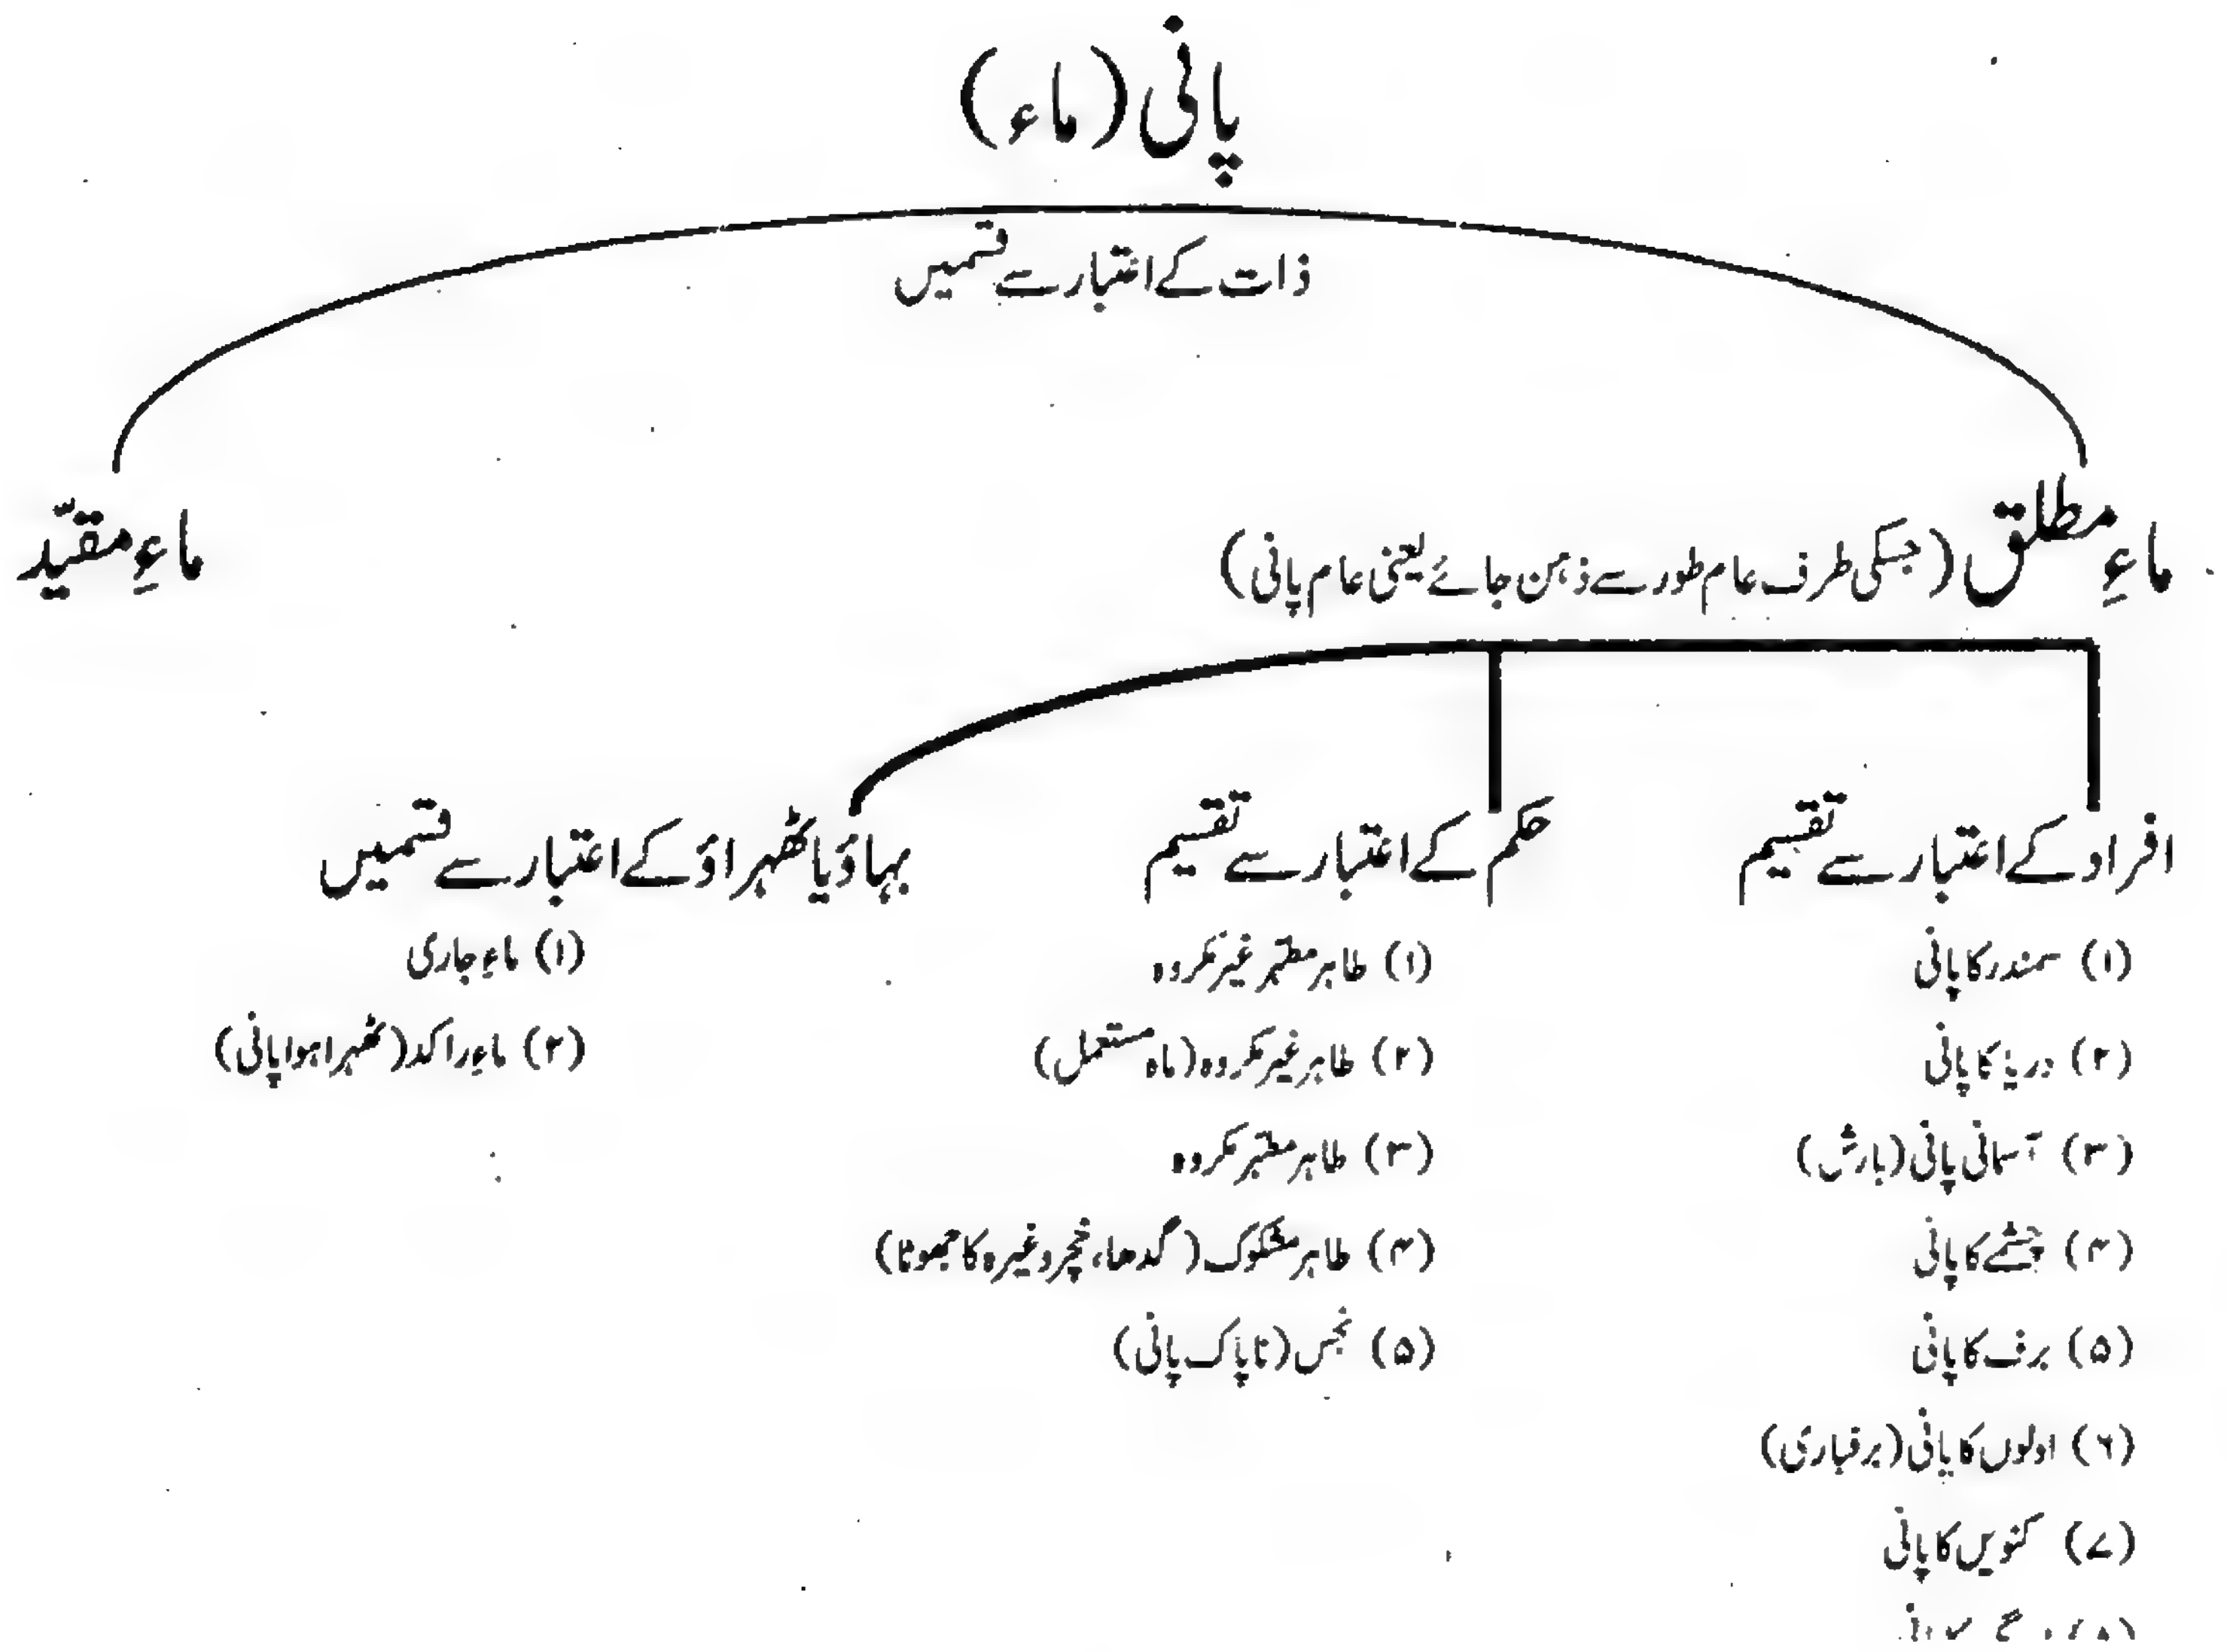 پانی (ماء)
ذات کے اعتبار سے قسمیں
ماءِ مطلق (جسکی طرف عام طور سے ذہن جائے یعنی عام پانی)
ماءِ مقیّد
افراد کے اعتبار سے تقسیم
(۱) سمندر کا پانی
(۲) دریا کا پانی
(۳) آسمانی پانی (بارش)
(۴) چشمے کا پانی
(۵) برف کا پانی
(۶) اولوں کا پانی (برفباری)
(۷) کنویں کا پانی
حکم کے اعتبار سے تقسیم
(۱) طاہر مطہر غیر مکروہ
(۲) طاہر غیر مکروہ (ماء مستعمل)
(۳) طاہر مطہر مکروہ
(۴) طاہر مشکوک (گدھا، خچر وغیرہ کا جھوٹا)
(۵) نجس (ناپاک پانی)
بہاؤ یا ٹھہراؤ کے اعتبار سے قسمیں
(۱) ماءِ جاری
(۲) ماءِ راکد (ٹھہرا ہوا پانی)